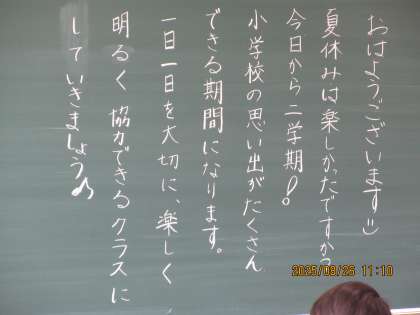 おはようございます
夏休みは楽しかったですか？
今日から二学期！。
小学校の思い出がたくさん
できる期間になります。
一日一日を大切に、楽しく
明るく協力できるクラスに
していきましょう
2025/08/25 11:10